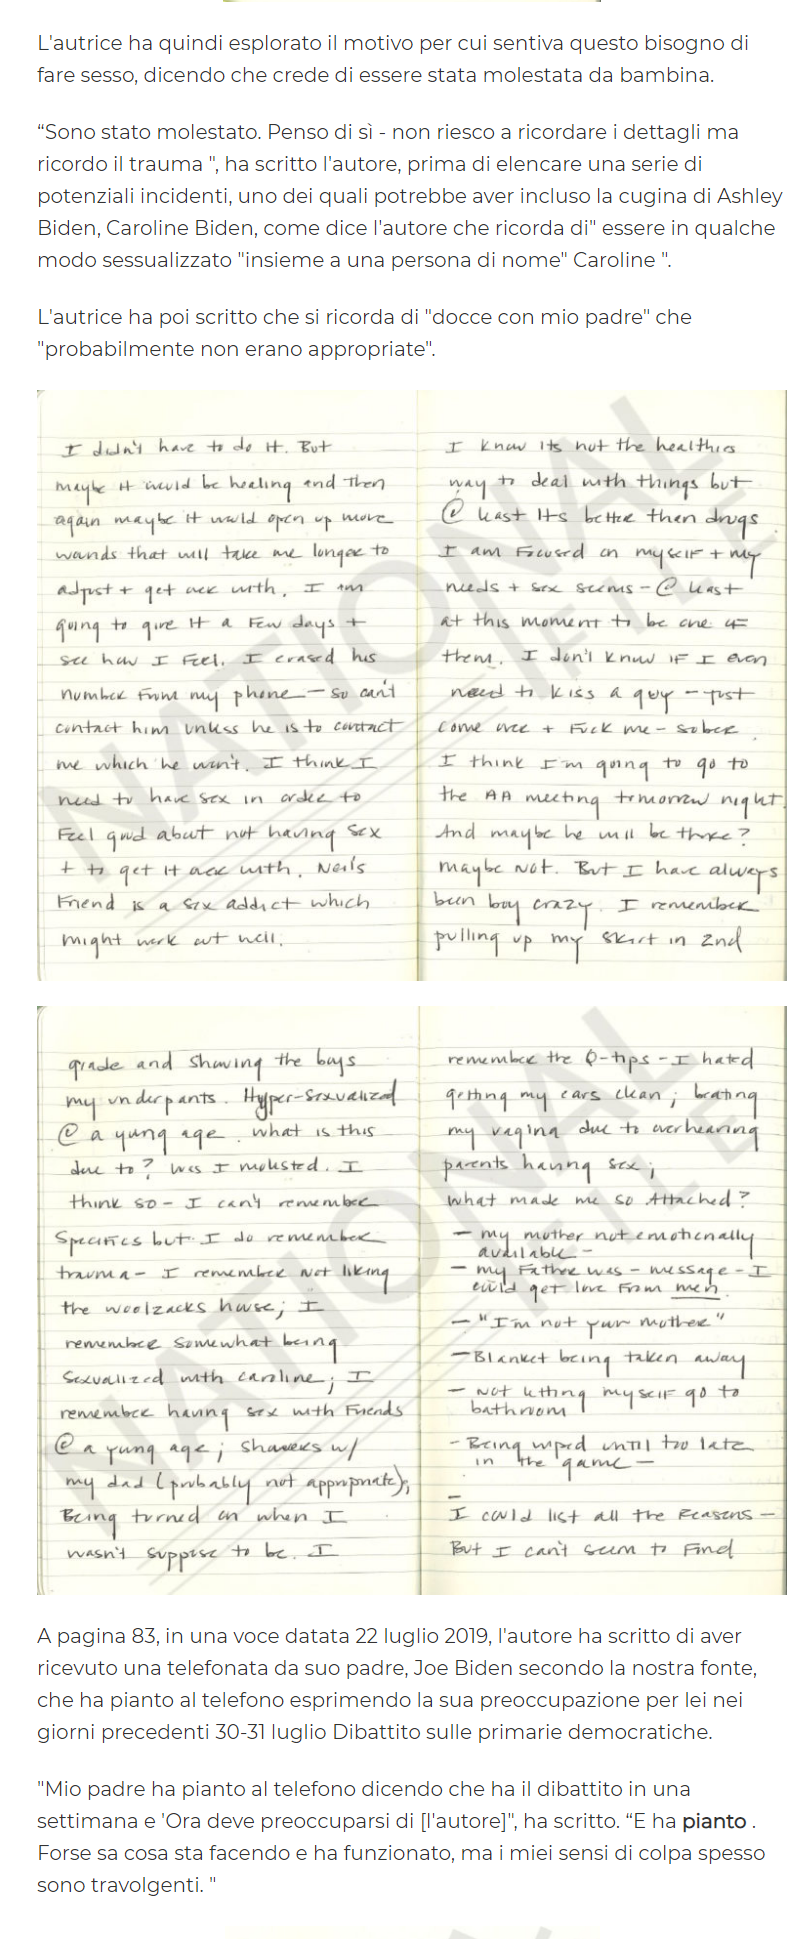 L'autrice ha quindi esplorato il motivo per cui sentiva questo bisogno di
fare sesso, dicendo che crede di essere stata molestata da bambina.
“Sono stato molestato. Penso di sì - non riesco a ricordare i dettagli ma
ricordo il trauma ", ha scritto l'autore, prima di elencare una serie di
potenziali incidenti, uno dei quali potrebbe aver incluso la cugina di Ashley
Biden, Caroline Biden, come dice l'autore che ricorda di" essere in qualche
modo sessualizzato "insieme a una persona di nome" Caroline ".
L'autrice ha poi scritto che si ricorda di "docce con mio padre" che
"probabilmente non erano appropriate".
NATIONAL FILE
I didn't have to do it. But
maybe it would be healing and then
again maybe it would open up more
wounds that will take me longer to
adjust + get over with. I am
going to give it a few days +
see how I feel. I erased his
number from my phone - so can't
contact him unless he is to contact
me which he won't. I think I
need to have sex in order to
feel good about not having sex
+ to get it over with. Neil's
friend is a sex addict which
might work out well.
I know its not the healthies
way to deal with things but
@ least its better then drugs.
I am focused on myself + my
needs + sex seems - @ least
at this moment to be one of
them. I don't know if I even
need to kiss a guy - just
come over + fuck me - sober.
I think I'm going to go to
the AA meeting tomorrow night.
And maybe he will be there?
maybe not. But I have always
been boy crazy. I remember
pulling up my skirt in 2nd
NATIONAL FILE
grade and showing the boys
my underpants. Hyper-sexualized
@ a young age. what is this
due to? Was I molested. I
think so - I can't remember
specifics but I do remember
trauma - I remember not liking
the woolzacks house; I
remember somewhat being
sexualized with caroline; I
remember having sex with friends
@ a young age; showers w/
my dad (probably not appropriate);
Being turned on when I
wasn't suppose to be. I
remember the Q-tips - I hated
getting my ears clean; beating
my vagina due to overhearing
parents having sex;
what made me so attached?
- my mother not emotionally
available -
- my father was - message - I
could get love from men.
- "I'm not your mother"
- Blanket being taken away
- Not letting myself go to
bathroom
- Being wiped until too late
in the game -
-
I could list all the reasons -
But I can't seem to find
A pagina 83, in una voce datata 22 luglio 2019, l'autore ha scritto di aver
ricevuto una telefonata da suo padre, Joe Biden secondo la nostra fonte,
che ha pianto al telefono esprimendo la sua preoccupazione per lei nei
giorni precedenti 30-31 luglio Dibattito sulle primarie democratiche.
"Mio padre ha pianto al telefono dicendo che ha il dibattito in una
settimana e 'Ora deve preoccuparsi di [l'autore]", ha scritto. “E ha pianto .
Forse sa cosa sta facendo e ha funzionato, ma i miei sensi di colpa spesso
sono travolgenti. "